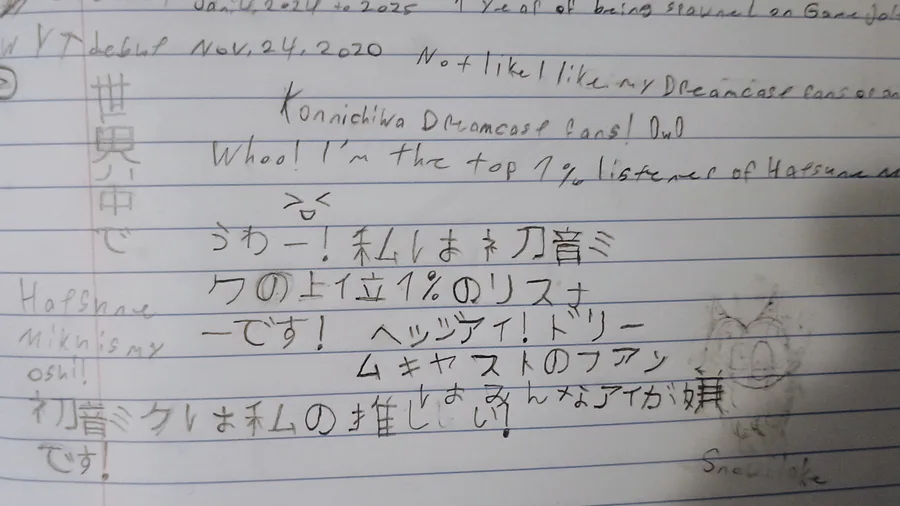 Jan, 4, 2024 to 2025 1 year of being spawned on GameJol
W YT debut Nov, 24, 2020 Not like I like my Dreamcase fans or an
Konnichiwa Dreamcast fans! OwO
Whoo! I'm the top 1% listener of Hatsune M
世界中で
うわー!私は初音ミ
クの上位1%のリスナ
ーです! ヘッジアイ!ドリー
ムキャストのファン
はみんなアイが嫌
い!
Hatsune
Miku is my
oshi!
初音ミクは私の推し
です!
Snowflake